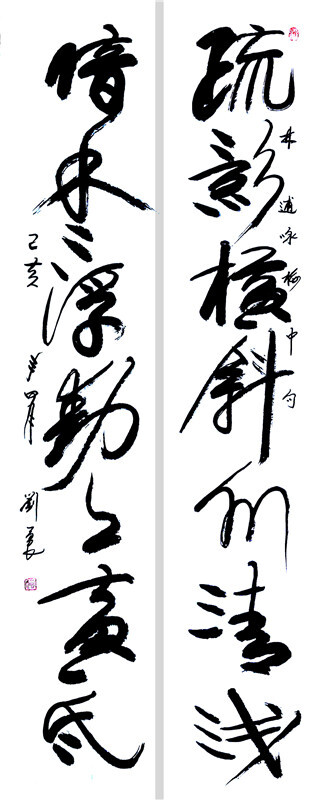 疏影横斜水清浅
林逋咏梅中句
暗香浮動月黄昏
己亥年四月
劉